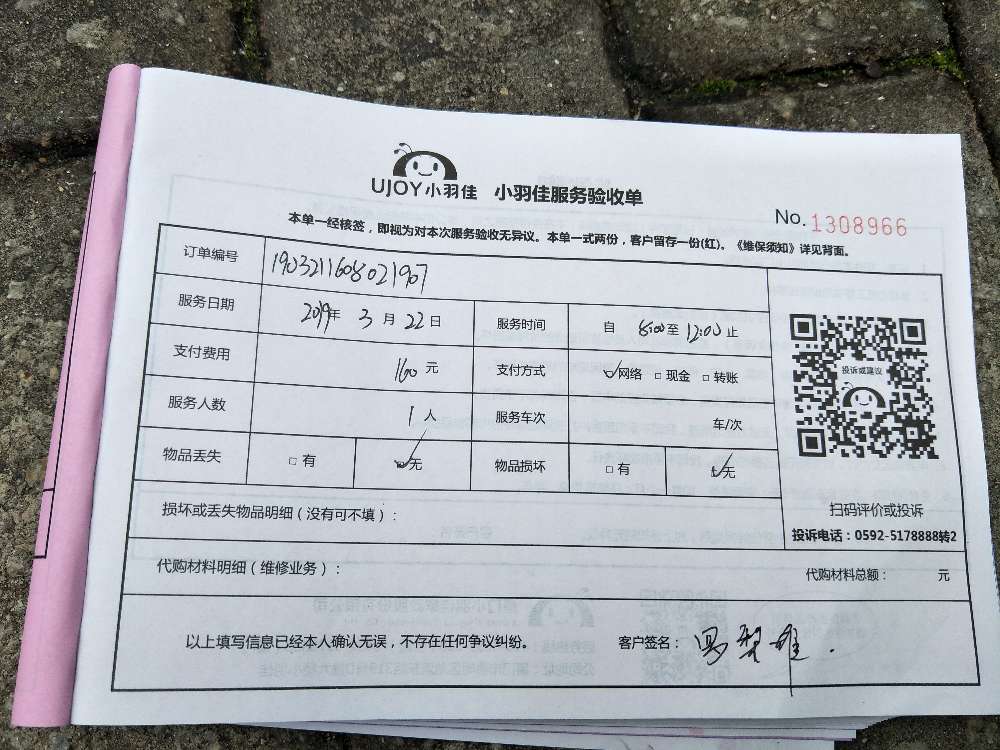 UJOY小羽佳 小羽佳服务验收单
No.1308966
本单一经核签，即视为对本次服务验收无异议。本单一式两份，客户留存一份(红)。《维保须知》详见背面。
订单编号 1903211608021907
服务日期 2019年 3 月 22 日 服务时间 自 8:00 至 12:00 止
支付费用 160 元 支付方式 网络 现金 转账
服务人数 1 人 服务车次 车/次
物品丢失 有 无 物品损坏 有 无
投诉或建议
扫码评价或投诉
投诉电话：0592-5178888转2
损坏或丢失物品明细（没有可不填）：
代购材料明细（维修业务）： 代购材料总额： 元
以上填写信息已经本人确认无误，不存在任何争议纠纷。 客户签名：